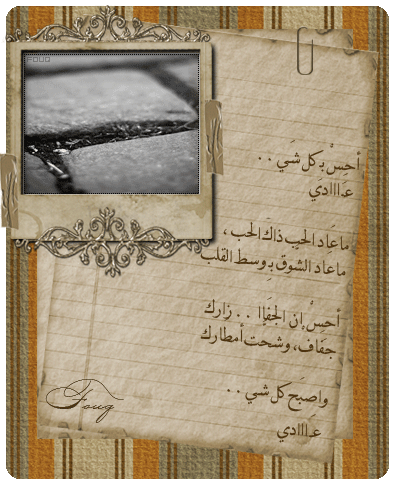 FOUQ
أحِسْ بـِكل شَي . .
عـَاااادَي
ماعَاد الحب ذاكَ الحب ،
ماعاد الشوق بـِوسط القلب
أحِسْ إن الجفَاا . . زارك
جفَاف، وشحت أمطارك
واصبَح كل شي . .
عـَااادي
Fouq